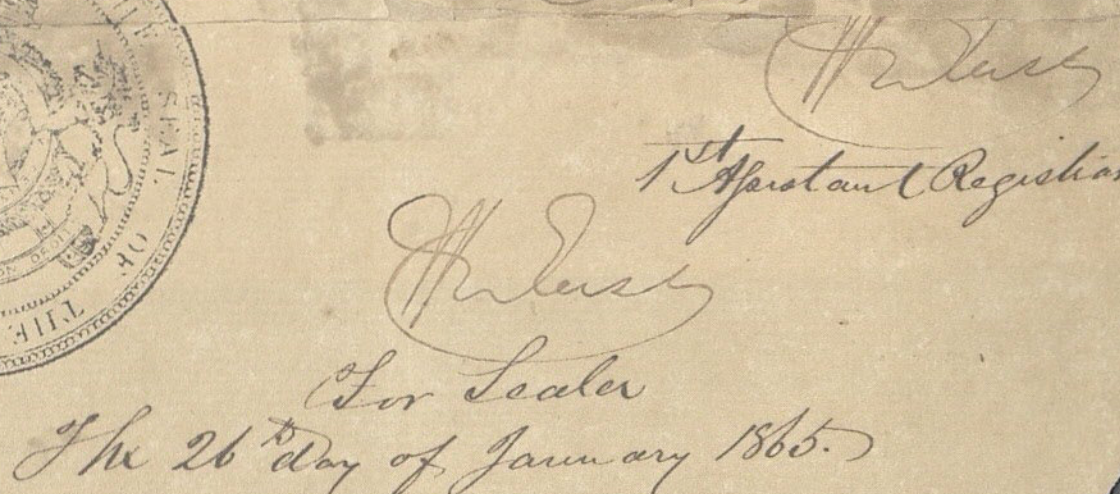 SEAL OF THE
1st Assistant Registrar
For Sealer
The 26th day of January 1865.